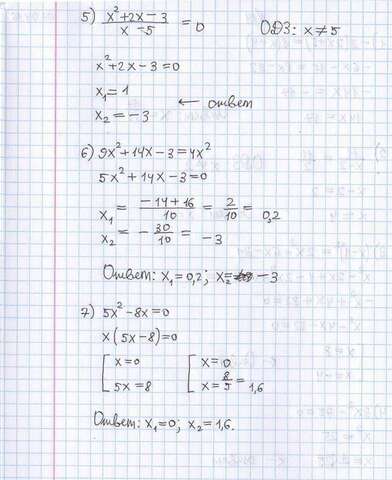 5) (x²+2x-3)/(x-5) = 0 ОДЗ: x≠5
x²+2x-3=0
x₁=1
x₂=-3 ← ответ
6) 9x²+14x-3=4x²
5x²+14x-3=0
x₁ = (-14+16)/10 = 2/10 = 0,2
x₂ = -30/10 = -3
Ответ: x₁=0,2; x₂= -3
7) 5x²-8x=0
x(5x-8)=0
[ x=0 [ x=0
[ 5x=8 [ x=8/5=1,6
Ответ: x₁=0; x₂=1,6.